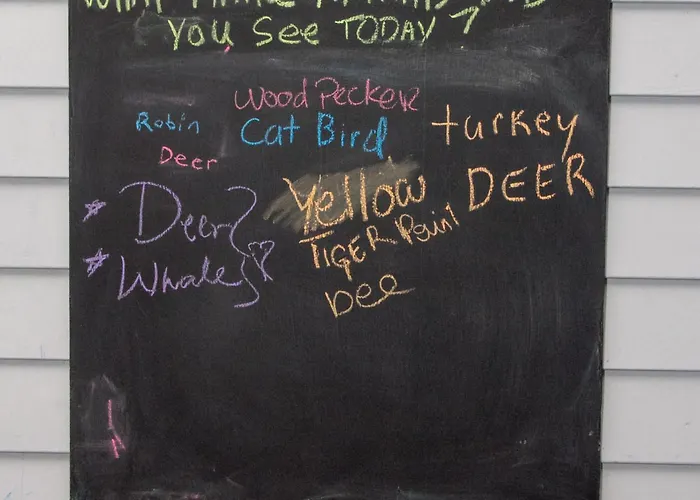 You See TODAY ?
WoodPecker
Robin
Cat Bird
turkey
Deer
Yellow
DEER
Deer
TIGER
* Whales
Dee